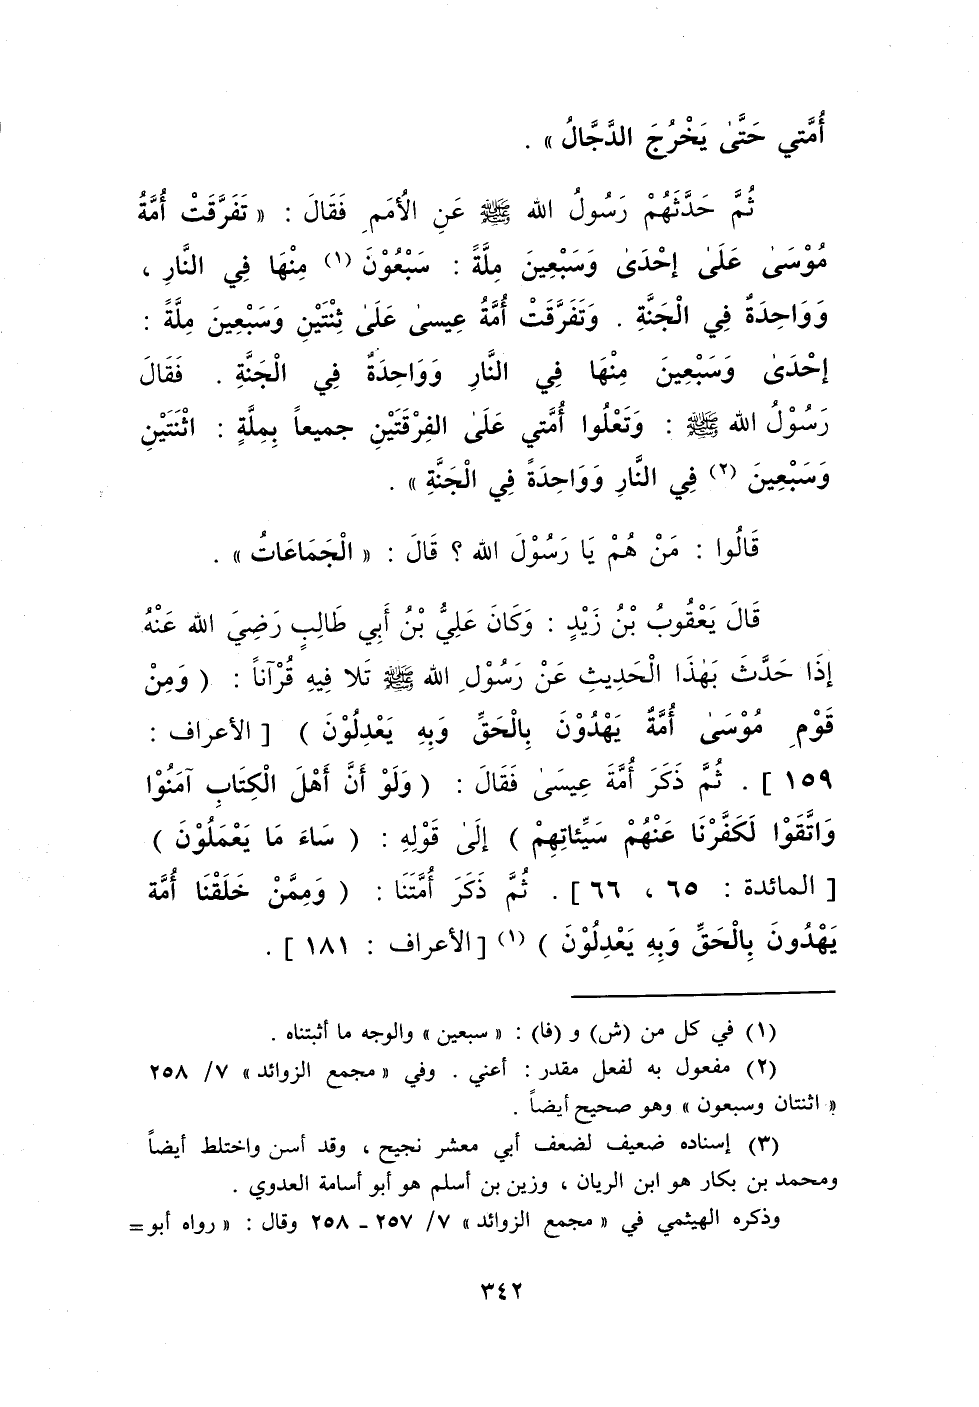 أُمَّتي حَتَّىٰ يَخْرُجَ الدَّجَّالُ » .
ثُمَّ حَدَّثَهُمْ رَسُولُ الله ﷺ عَنِ الأُمَمِ فَقَالَ : « تَفَرَّقَتْ أُمَّةُ
مُوْسَىٰ عَلَىٰ إحْدَىٰ وَسَبْعِينَ مِلَّةً : سَبْعُوْنَ (١) مِنْهَا فِي النَّارِ ،
وَوَاحِدَةٌ فِي الْجَنَّةِ . وَتَفَرَّقَتْ أُمَّةُ عِيسىٰ عَلَىٰ ثِنْتَيْنِ وَسَبْعِينَ مِلَّةً :
إحْدَىٰ وَسَبْعِينَ مِنْهَا فِي النَّارِ وَوَاحِدَةٌ فِي الْجَنَّةِ . فَقَالَ
رَسُوْلُ الله ﷺ : وَتَعْلُوا أُمَّتي عَلَىٰ الفِرْقَتَيْنِ جميعاً بِمِلَّةٍ : اثْنَتَيْنِ
وَسَبْعِينَ (٢) فِي النَّارِ وَوَاحِدَةً فِي الْجَنَّةِ » .
قَالُوا : مَنْ هُمْ يَا رَسُوْلَ الله ؟ قَالَ : « الْجَمَاعَاتُ » .
قَالَ يَعْقُوبُ بْنُ زَيْدٍ : وَكَانَ عَلِيُّ بْنُ أَبِي طَالِبٍ رَضِيَ الله عَنْهُ
إذَا حَدَّثَ بَهٰذَا الْحَدِيثِ عَنْ رَسُوْلِ الله ﷺ تَلا فِيهِ قُرْآناً : ( وَمِنْ
قَوْمِ مُوْسَىٰ أُمَّةٌ يَهْدُوْنَ بِالْحَقِّ وَبِهِ يَعْدِلُوْنَ ) [ الأعراف :
١٥٩ ] . ثُمَّ ذَكَرَ أُمَّةَ عِيسَىٰ فَقَالَ : ( وَلَوْ أَنَّ أَهْلَ الْكِتَابِ آمَنُوْا
وَاتَّقَوْا لَكَفَّرْنَا عَنْهُمْ سَيِّئاتِهِمْ ) إلَىٰ قَوْلِهِ : ( سَاءَ مَا يَعْمَلُوْنَ )
[ المائدة : ٦٥ ، ٦٦ ] . ثُمَّ ذَكَرَ أُمَّتَنَا : ( وَمِمَّنْ خَلَقْنَا أُمَّة
يَهْدُونَ بِالْحَقِّ وَبِهِ يَعْدِلُوْنَ ) (١) [ الأعراف : ١٨١ ] .
(١) في كل من (ش) و (فا) : « سبعين » والوجه ما أثبتناه .
(٢) مفعول به لفعل مقدر : أعني . وفي « مجمع الزوائد » ٧/ ٢٥٨
« اثنتان وسبعون » وهو صحيح أيضاً .
(٣) إسناده ضعيف لضعف أبي معشر نجيح ، وقد أسن واختلط أيضاً
ومحمد بن بكار هو ابن الريان ، وزين بن أسلم هو أبو أسامة العدوي .
وذكره الهيثمي في « مجمع الزوائد » ٧/ ٢٥٧ ـ ٢٥٨ وقال : « رواه أبو =
٣٤٢